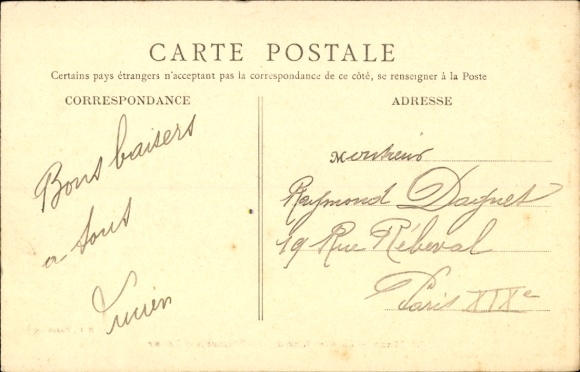 CARTE POSTALE
Certains pays étrangers n'acceptant pas la correspondance de ce côté, se renseigner à la Poste
CORRESPONDANCE
Bons baisers
a tous
Lucien
ADRESSE
Monsieur
Raymond Dagnet
19 Rue Rébeval
Paris XIXe